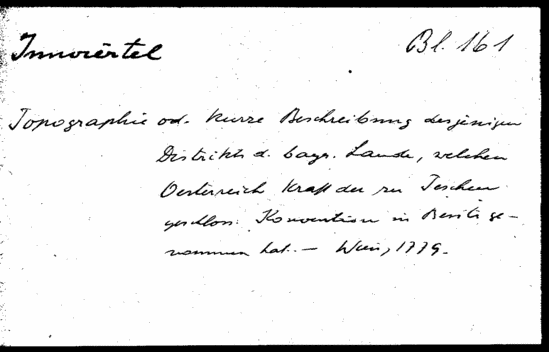 Innviertel
Bl. 161
Topographie od. kurze Beschreibung desjenigen
Distrikts d. bayr. Lande, welchen
Oesterreich kraft der zu Teschen
geschloss. Konvention in Besitz ge-
nommen hat. — Wien, 1779.